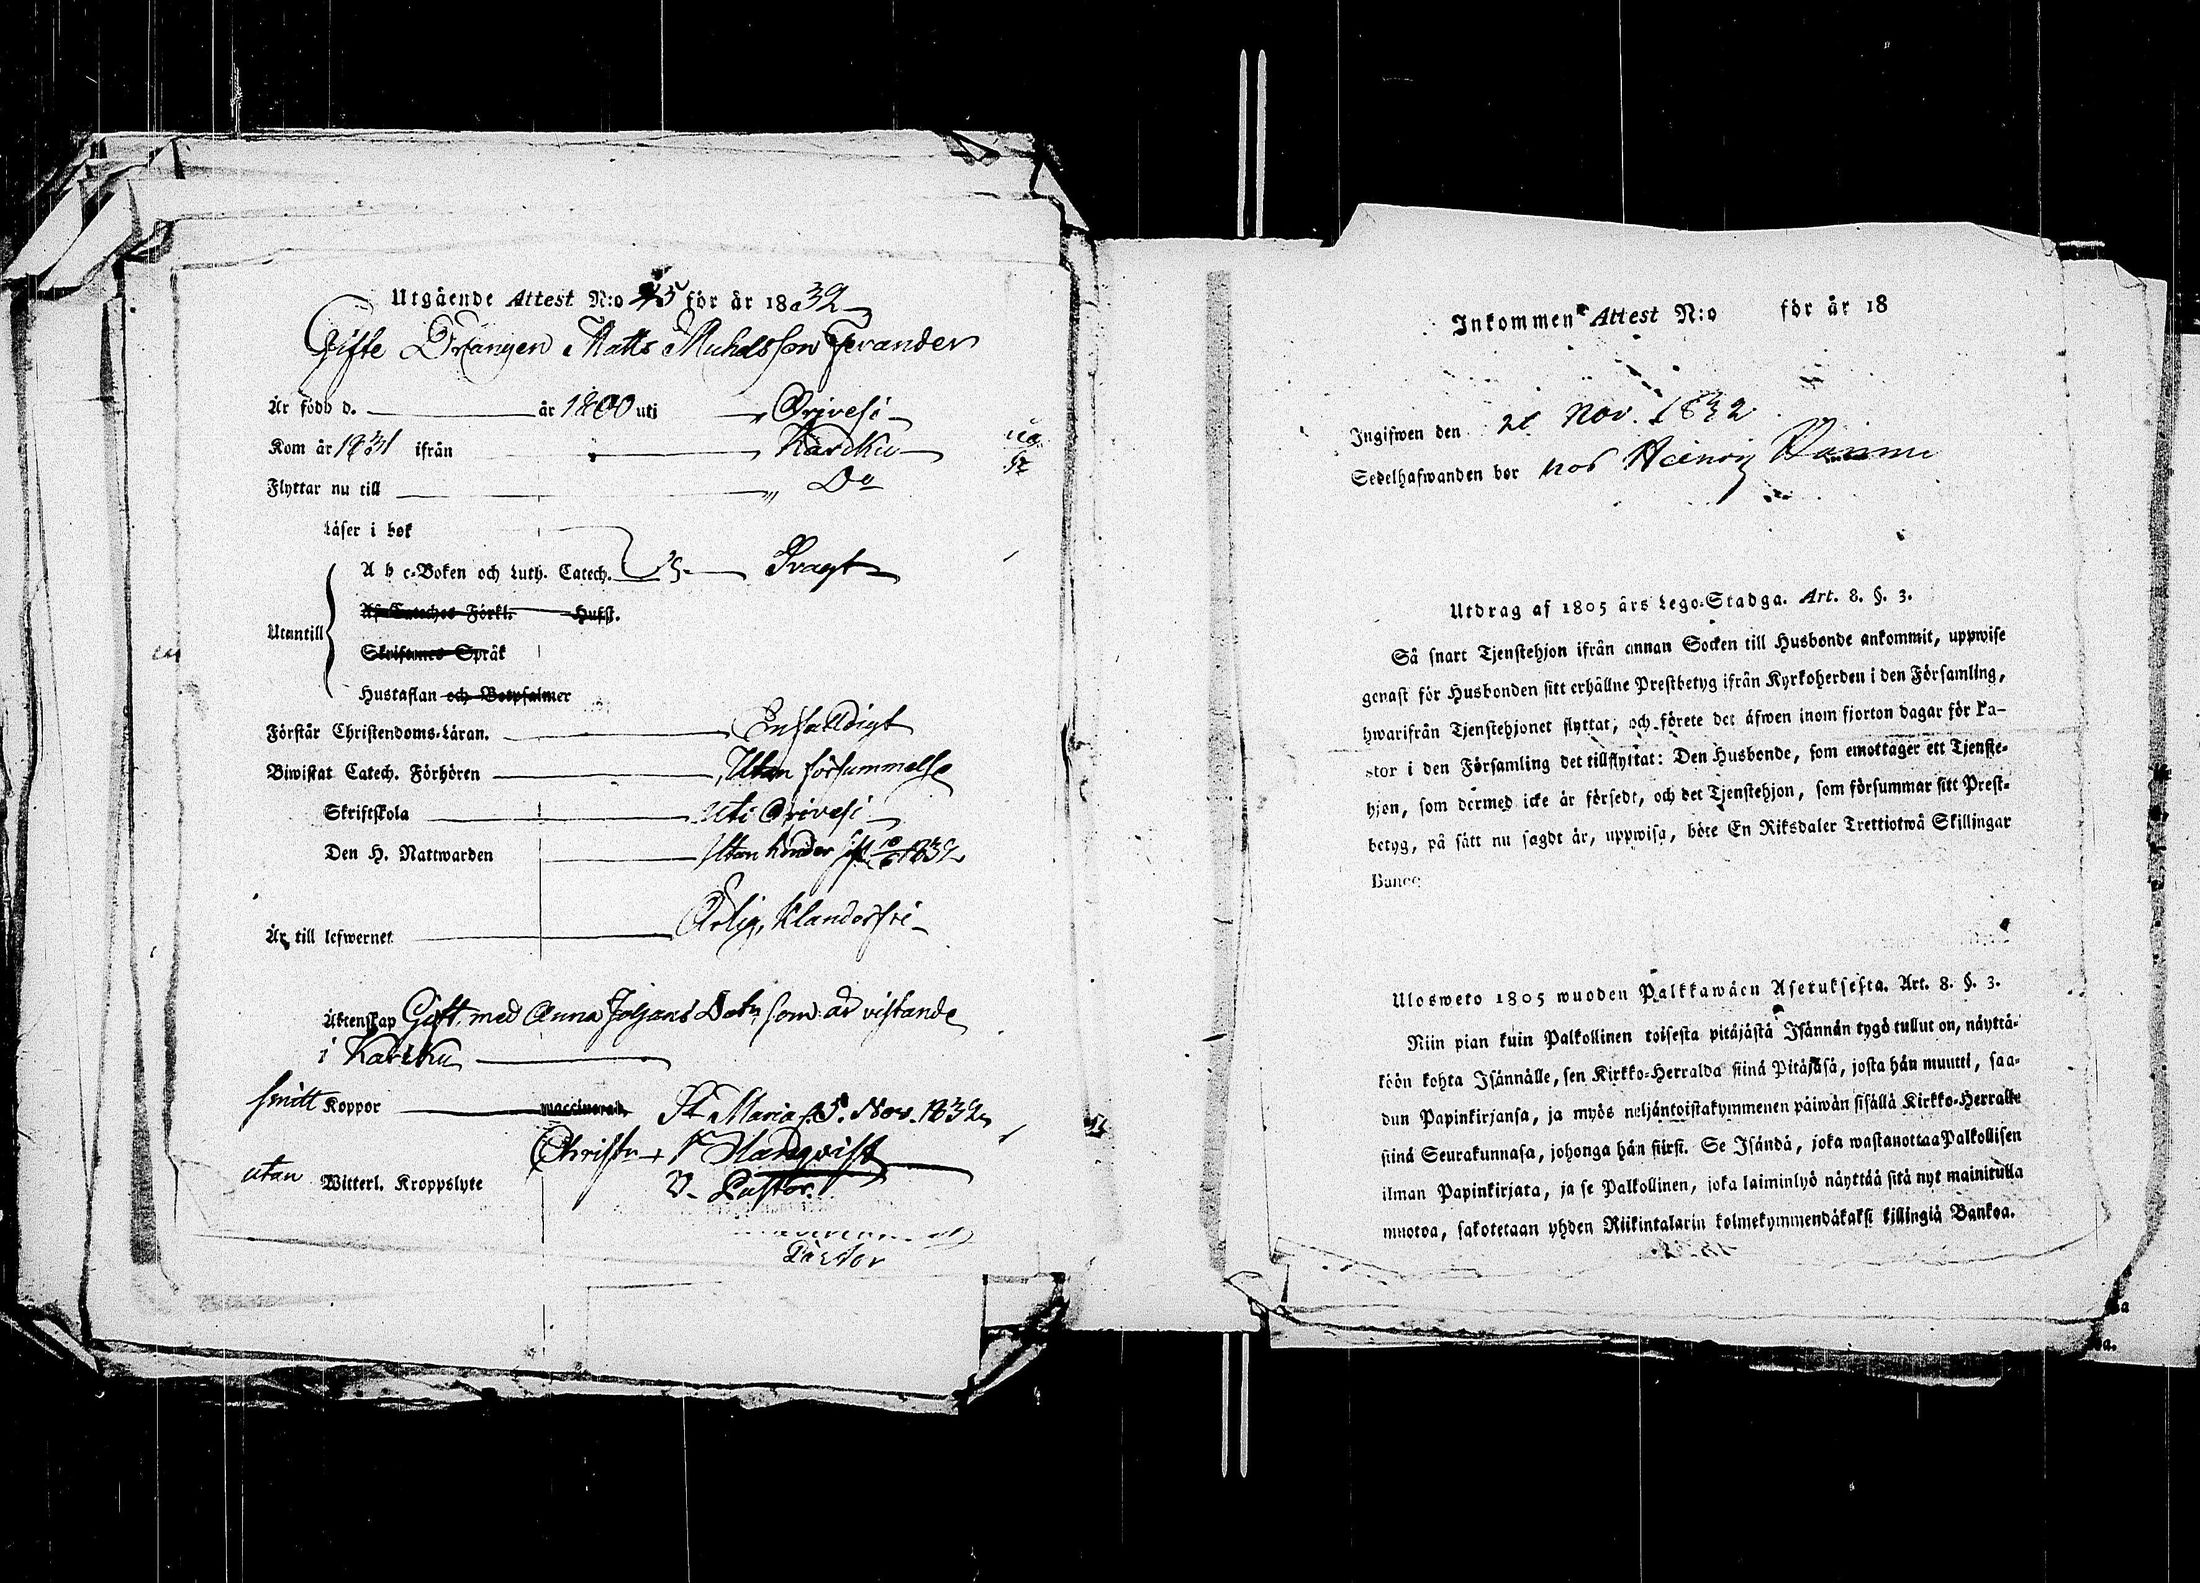 Utgående Attest N:o 45 för år 1832
Gifte Drängen Matts Michelsson Ferander
Är född d. år 1800 uti Orivesi
Kom år 1831 ifrån Karcku
Flyttar nu till Do
Läser i bok
A b c-Boken och Luth. Catech. Svagt
Af Cateches Förkl. Hufst.
Utantill
Skriftenes Språk
Hustaflan och Botpsalmer
Förstår Christendoms-Läran. Enfalldigt
Biwistat Catech. Förhören Utan försummelse
Skriftskola uti Orivesi
Den H. Nattwarden utan hinder sist 10/6 1832
Är till lefwernet Ärlig, Klanderfri
Äktenskap Gift med Anna Johans Dotr, som är vistande
i Karcku
smitt Koppor waccinerad, St Maria d. 5. Nov. 1832
Christ. Handqvist
utan Witterl. Kroppslyte V. Pastor.
Pastor
Inkommen Attest N:o för år 18
Ingifwen den 21 Nov. 1832
Sedelhafwanden bor hos Heinrig
Utdrag af 1805 års Lego-Stadga. Art. 8. §. 3.
Så snart Tjenstehjon ifrån annan Socken till Husbonde ankommit, uppwise
genast för Husbonden sitt erhållne Prestbetyg ifrån Kyrkoherden i den Församling,
hwarifrån Tjenstehjonet flyttat, och förete det äfwen inom fjorton dagar för Pa-
stor i den Församling det tillflyttat: Den Husbonde, som emottager ett Tjenste-
hjon, som dermed icke är försedt, och det Tjenstehjon, som försummar sitt Prest-
betyg, på sätt nu sagdt är, uppwisa, böte En Riksdaler Trettiotwå Skillingar
Banco
Ulosweto 1805 wuoden Palkkawäen Asetuksesta. Art. 8. §. 3.
Niin pian kuin Palkollinen toisesta pitäjästä Isännän tygö tullut on, näyttä-
köön kohta Isännälle, sen Kirkko-Herralda siinä Pitäjäsä, josta hän muutti, saa-
dun Papinkirjansa, ja myös neljäntoistakymmenen päiwän sisällä Kirkko-Herralle
siinä Seurakunnasa, johonga hän siirsi. Se Isändä, joka wastanottaa Palkollisen
ilman Papinkirjata, ja se Palkollinen, joka laiminlyö näyttää sitä nyt mainitulla
muotoa, sakotetaan yhden Riikintalarin kolmekymmendäkaksi killingiä Bankoa.